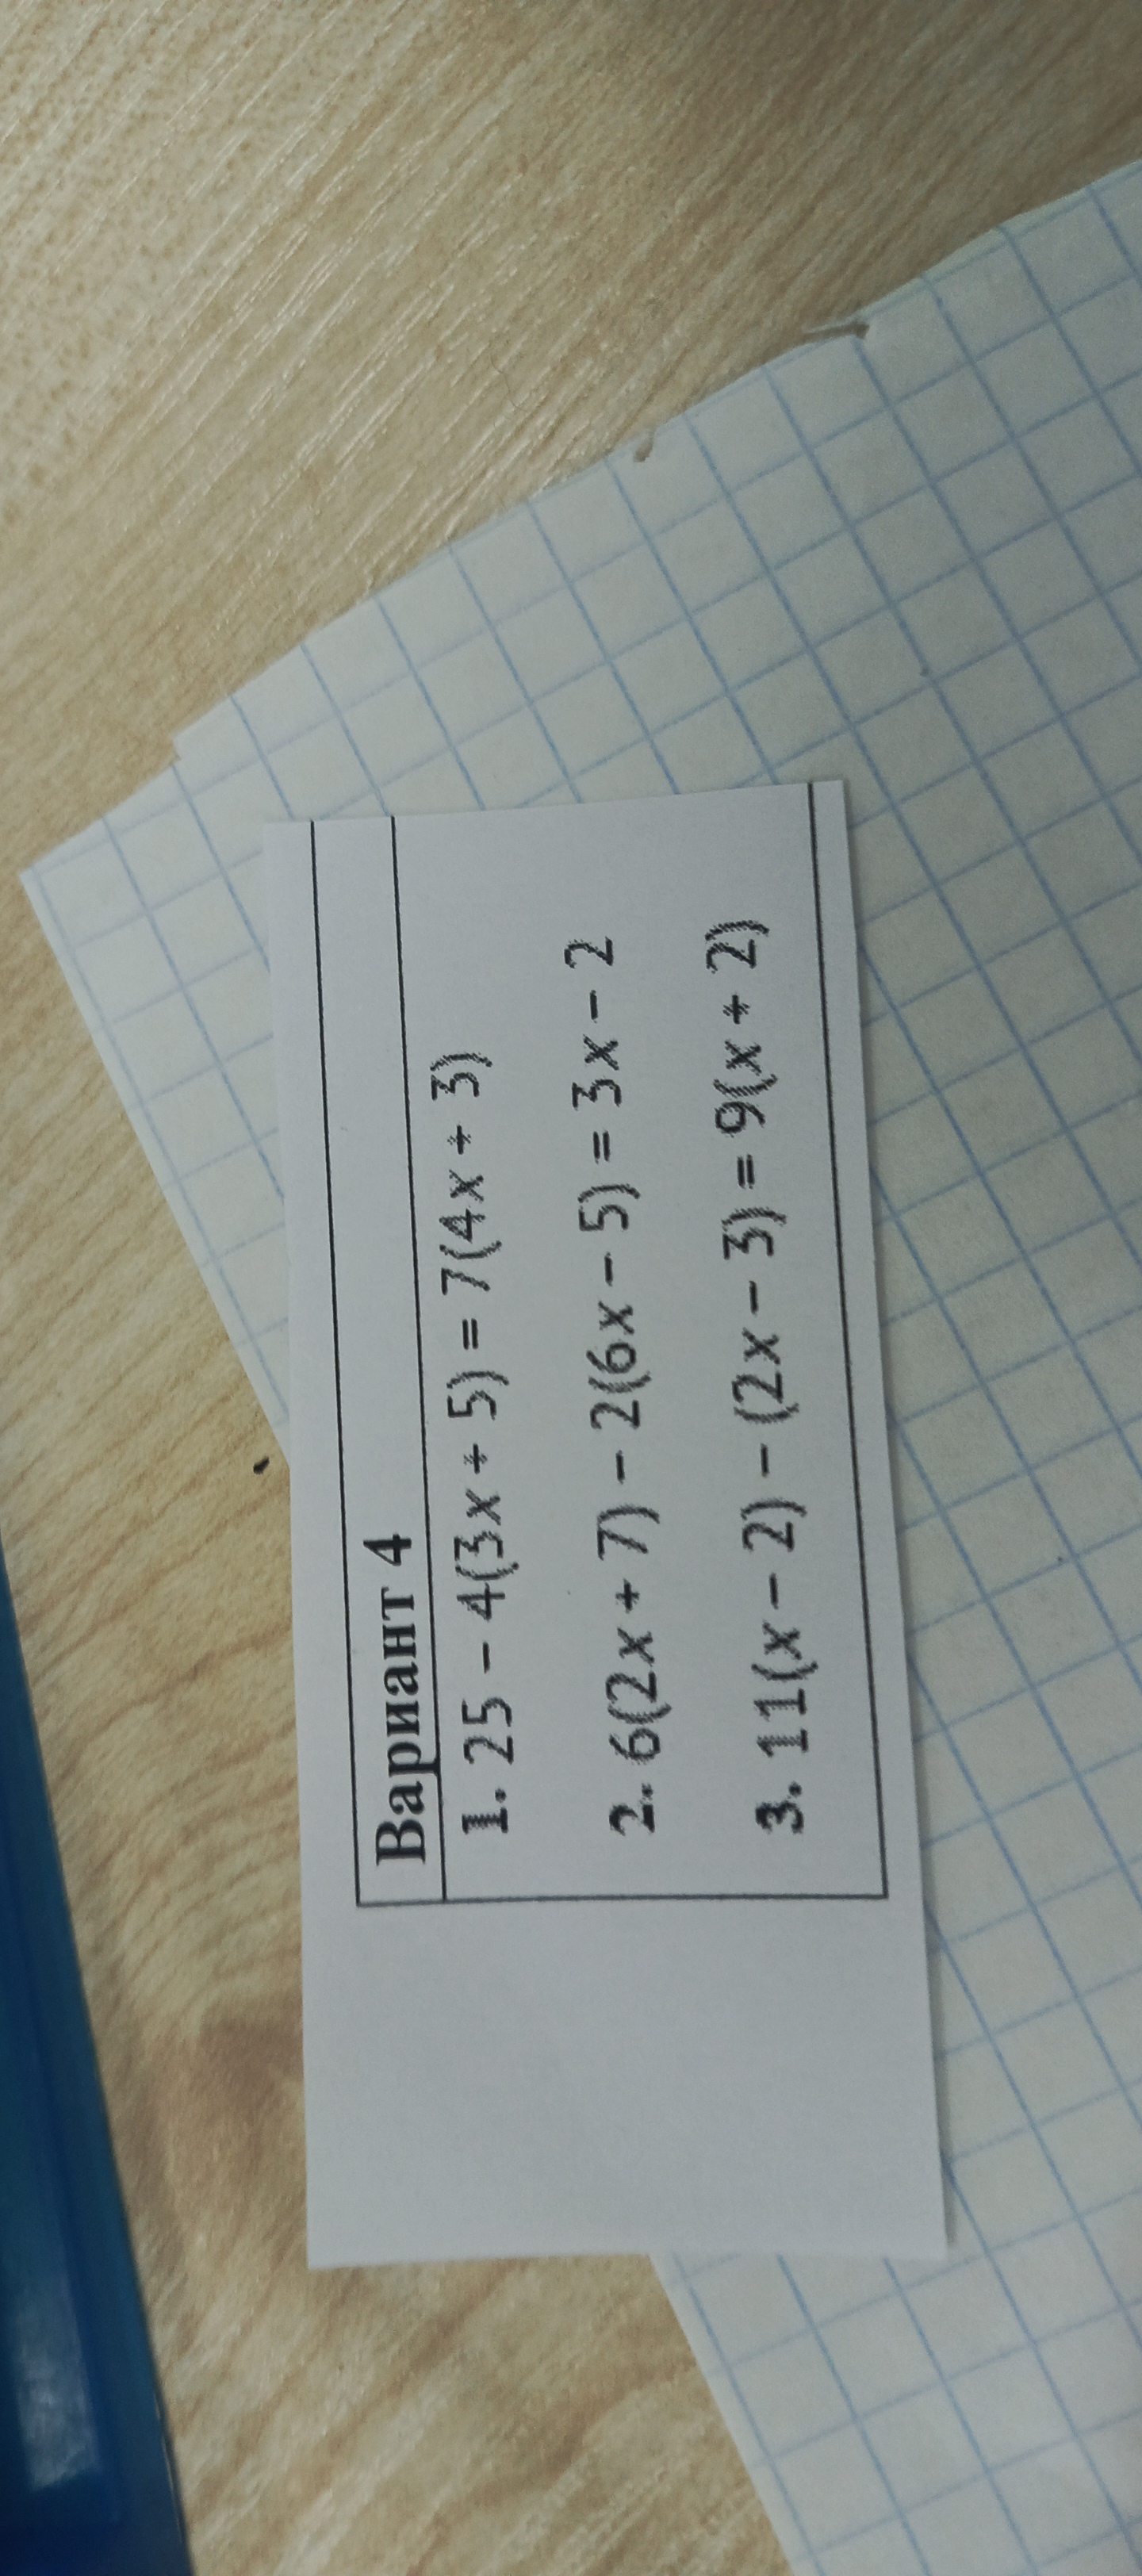 Вариант 4
1. 25 − 4(3x + 5) = 7(4x + 3)
2. 6(2x + 7) − 2(6x − 5) = 3x − 2
3. 11(x − 2) − (2x − 3) = 9(x + 2)